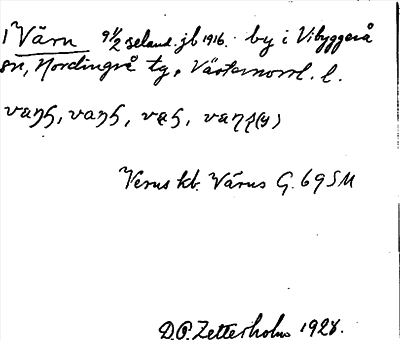 1 Värn 9 1/2 seland. jb 1916. by i Vibyggerå
sn, Nordingrå tg, Västernorrl. l.
Verus kb. Wärus G. 69 SM
D.O. Zetterholm 1928.